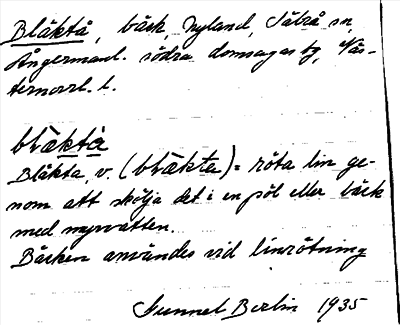 Bläktå, bäck, Nyland, Säbrå sn,
Ångermanl. södra domsagas tg, Väs-
ternorrl. l.
blæktå
Bläkta v. (blækta) = röta lin ge-
nom att skölja det i en pöl eller bäck
med myrvatten.
Bäcken användes vid linrötning
Gunnel Berlin 1935